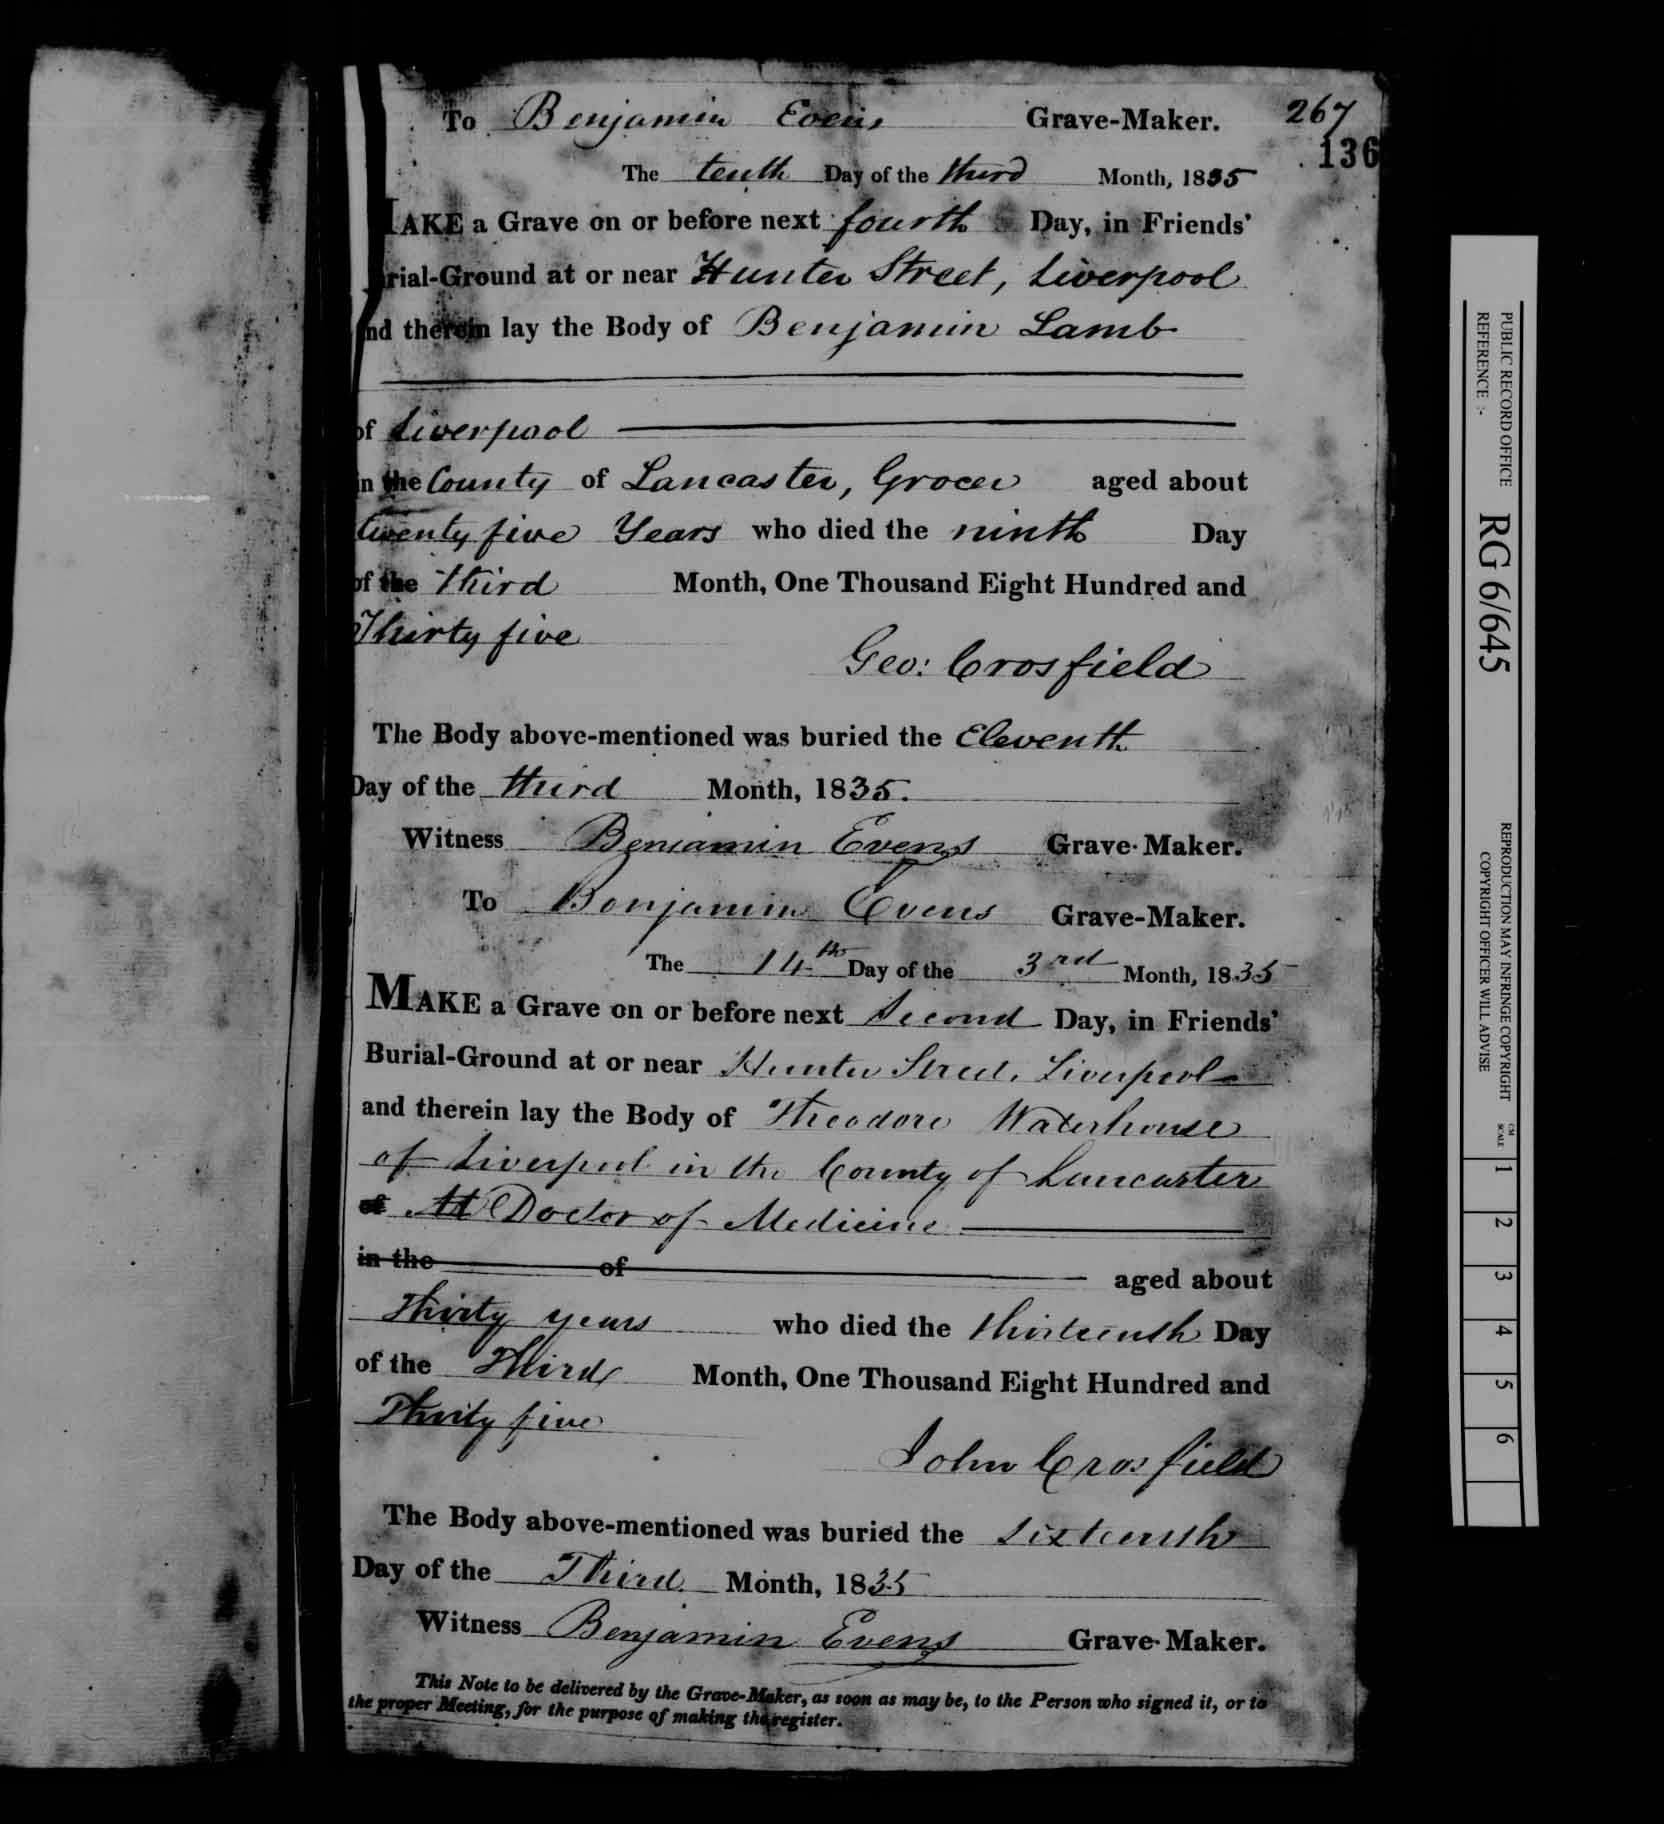 To Benjamin Evens Grave-Maker. 267
136
The tenth Day of the third Month, 1835
MAKE a Grave on or before next fourth Day, in Friends'
rial-Ground at or near Hunter Street, Liverpool
nd therein lay the Body of Benjamin Lamb
of Liverpool
in the County of Lancaster, Grocer aged about
twenty five Years who died the ninth Day
of the third Month, One Thousand Eight Hundred and
Thirty five
Geo: Crosfield
The Body above-mentioned was buried the Eleventh
Day of the third Month, 1835.
Witness Benjamin Evens Grave-Maker.
To Benjamin Evens Grave-Maker.
The 14th Day of the 3rd Month, 1835
MAKE a Grave on or before next Second Day, in Friends'
Burial-Ground at or near Hunter Street, Liverpool
and therein lay the Body of Theodore Waterhouse
of Liverpool in the County of Lancaster
of M Doctor of Medicine
in the of aged about
Thirty years who died the thirteenth Day
of the Third Month, One Thousand Eight Hundred and
Thirty five
John Crosfield
The Body above-mentioned was buried the sixteenth
Day of the Third Month, 1835
Witness Benjamin Evens Grave-Maker.
This Note to be delivered by the Grave-Maker, as soon as may be, to the Person who signed it, or to
the proper Meeting, for the purpose of making the register.
PUBLIC RECORD OFFICE
REFERENCE :-
RG 6/645
REPRODUCTION MAY INFRINGE COPYRIGHT
COPYRIGHT OFFICER WILL ADVISE
CM
SCALE
1
2
3
4
5
6